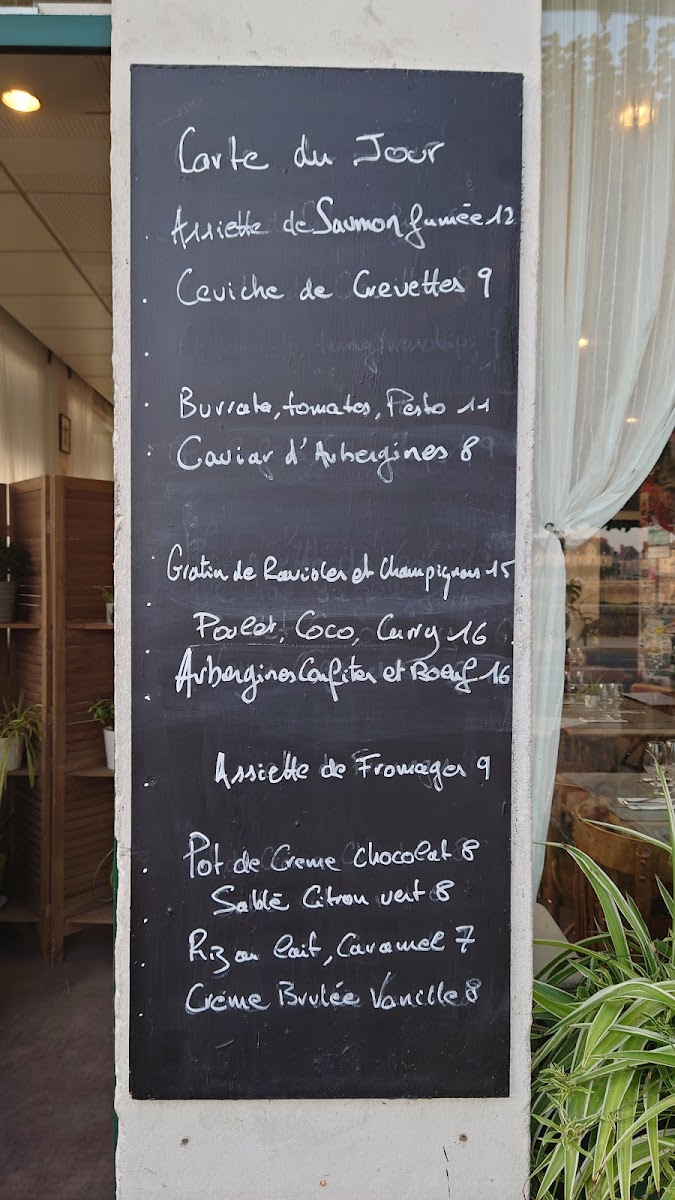 Carte du Jour
Assiette de Saumon fumée 12
Ceviche de Crevettes 9
Burrata, tomates, Pesto 11
Caviar d'Aubergines 8
Gratin de Ravioles et Champignons 15
Poulet, Coco, Curry 16
Aubergines Confites et Boeuf 16
Assiette de Fromages 9
Pot de Creme Chocolat 8
Sablé Citron vert 8
Riz au lait, Caramel 7
Créme Brulée Vanille 8